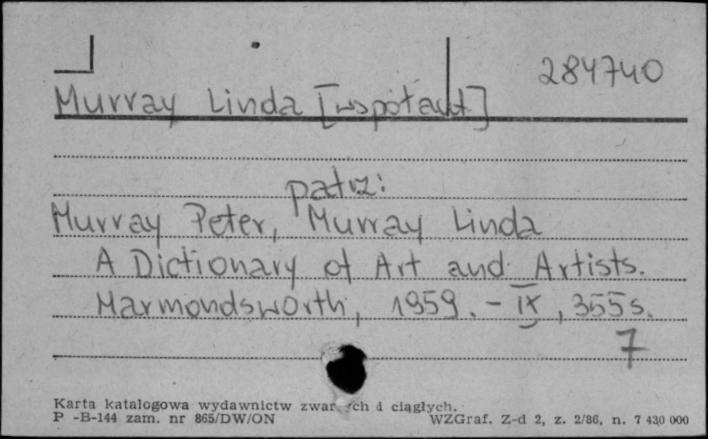 284740
Murray Linda [współaut]
patrz:
Murray Peter, Murray Linda
A Dictionary of Art and Artists.
Marmondsworth, 1959. - IX, 355s.
7
Karta katalogowa wydawnictw i ciągłych.
P -B-144 zam. nr 865/DW/ON WZGraf. Z-d 2, z. 2/86, n. 7 430 000